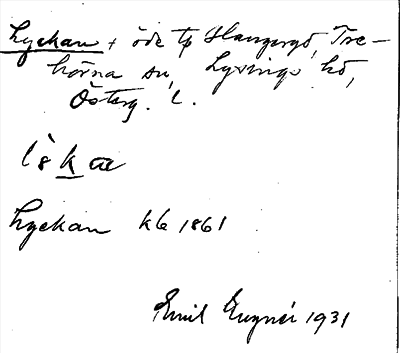 Lyckan + öde tp Hangergö, Tre-
hörna sn, Lysings hd,
Österg. l.
l`s k æ
Lyckan kb 1861
Emil Eugnér 1931